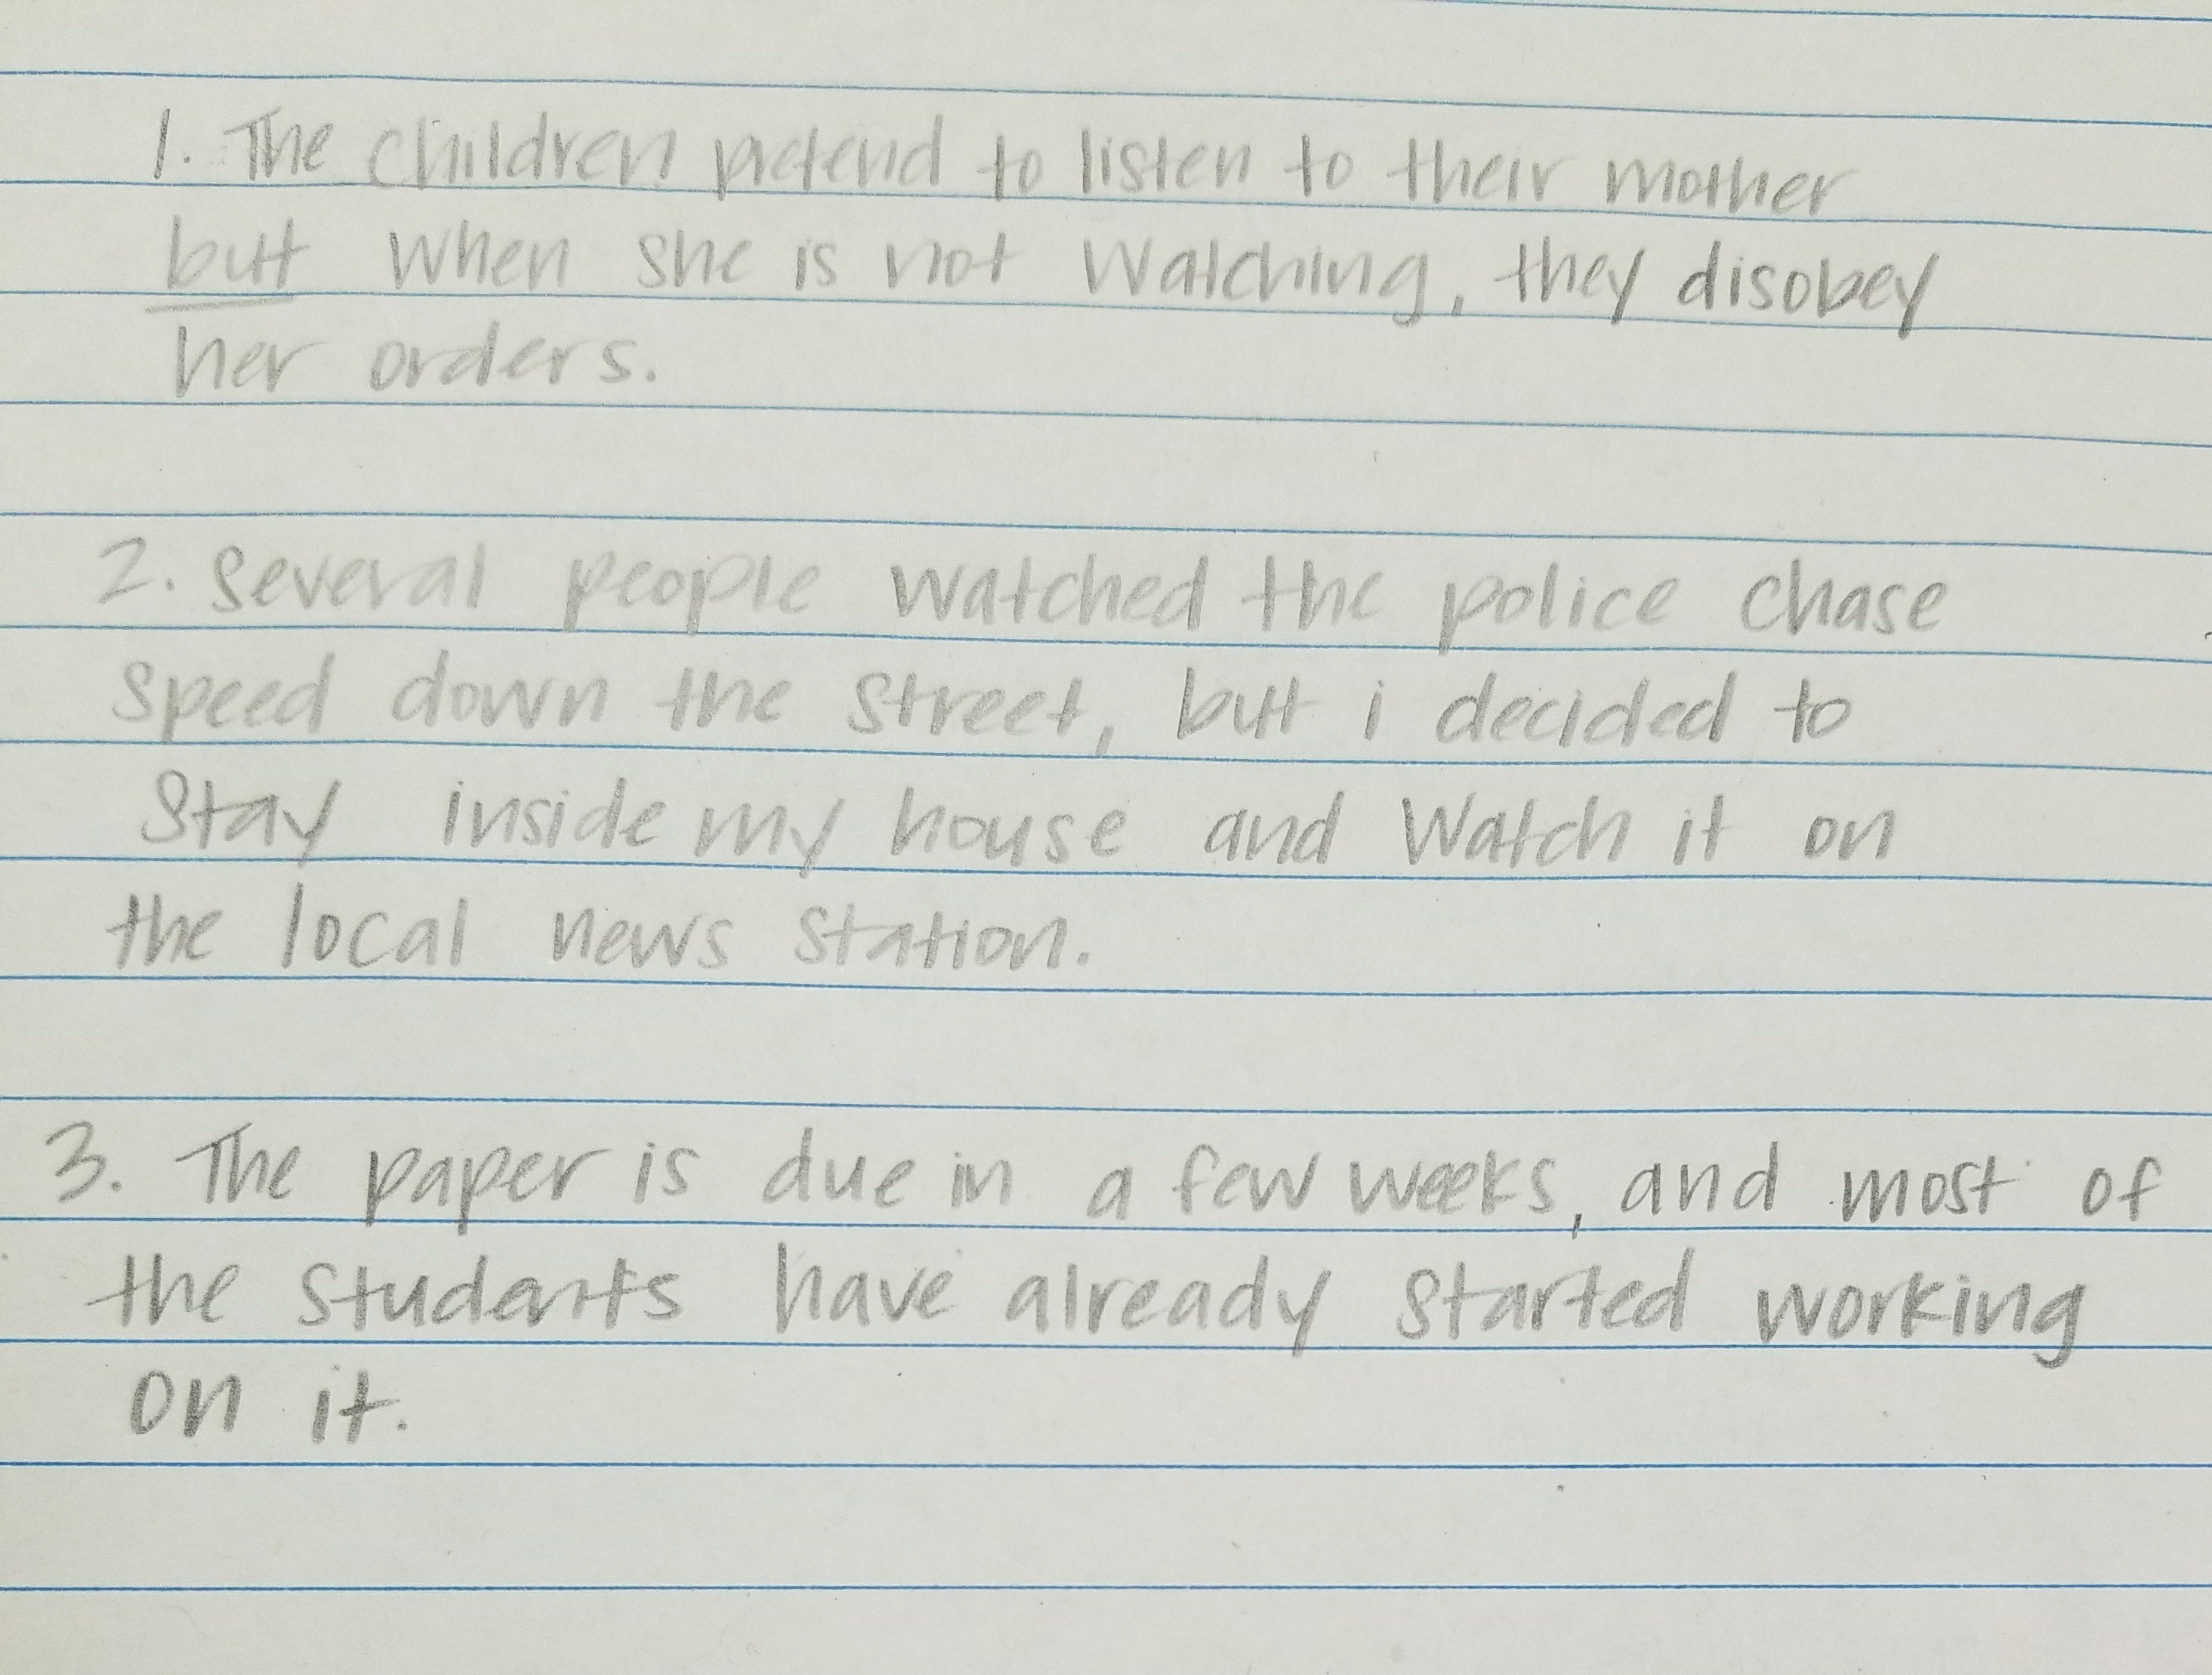 1. The children pretend to listen to their mother
but when she is not watching, they disobey
her orders.
2. Several people watched the police chase
speed down the street, but i decided to
stay inside my house and watch it on
the local news station.
3. The paper is due in a few weeks, and most of
the students have already started working
on it.